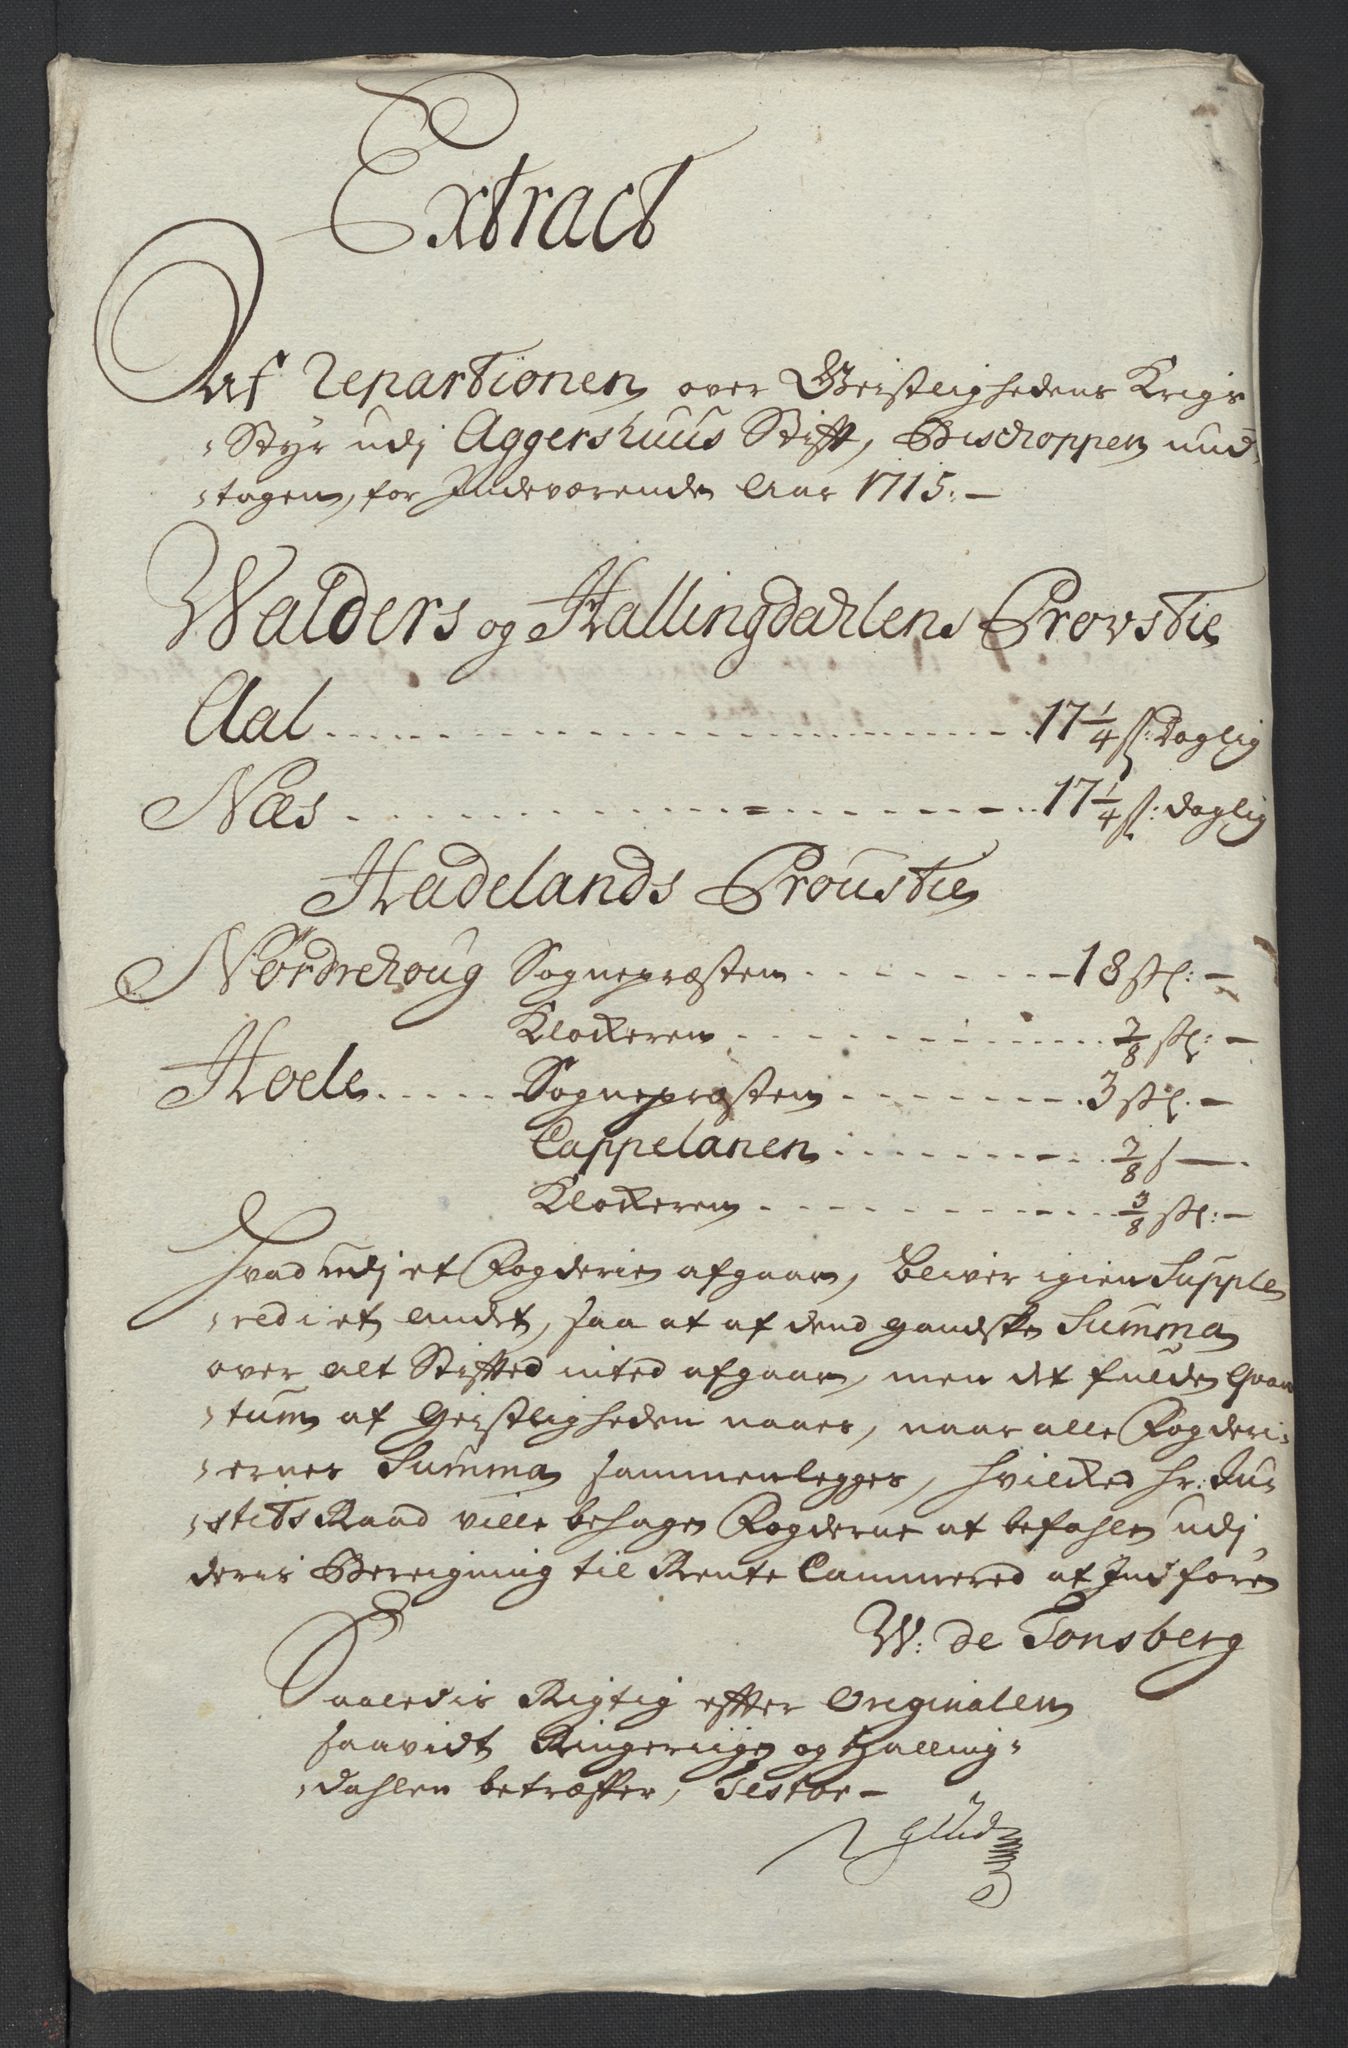 Extract
Af Repartionen over Geistlighedens Krigs
-Styr udj Aggershuus Stift, Bischoppen und-
-tagen, for Indeværende Aar 1715:-
Walders og Hallingdahlens Provstie
Aal ... 17 1/4 s: Daglig
Næs ... 17 1/4 s: daglig
Hadelands Proustie
Nordrehoug Sognepræsten ... 18 sk:-
Klockeren ... 7/8 sk:-
Hoele ... Sognepræsten ... 3 sk:-
Cappelanen ... 7/8 s-
Klockeren ... 3/8 sk:-
Hvad udj et Fogderie afgaar, bliver igien Supple-
-red i et andet, saa at af dend gandske Summa
over alt Stifted inted afgaar, men det fulde Qvan-
-tum af Geistligheden naaes, naar alle Fogderi-
-ernes Summa sammenlegges, hvilcked hr: Ju-
-stits Raad ville behage Fogderne at befahle udj
deris Beregning til Rente Cammered at Indføre
W: de Tonsberg
Saaledis Rigtig efter Originalen
saavidt Ringeriige og Halling-
-dahlen betræffer, Testor-
Glud